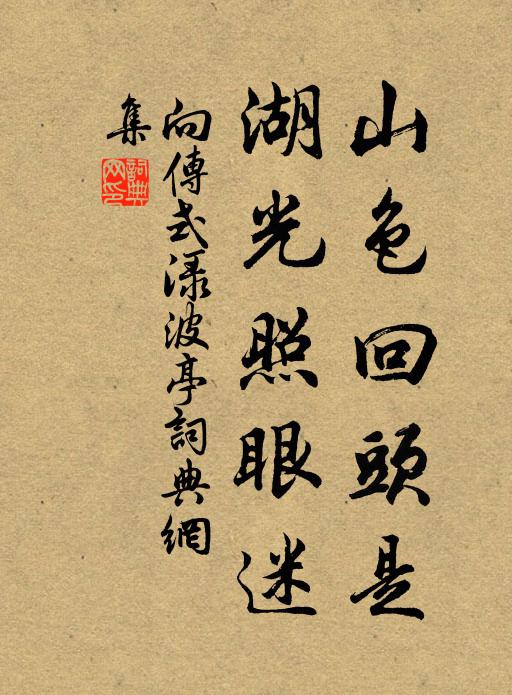 山色回頭是
湖光照眼迷
向傳式渌波亭詞典網
集
詞典網印